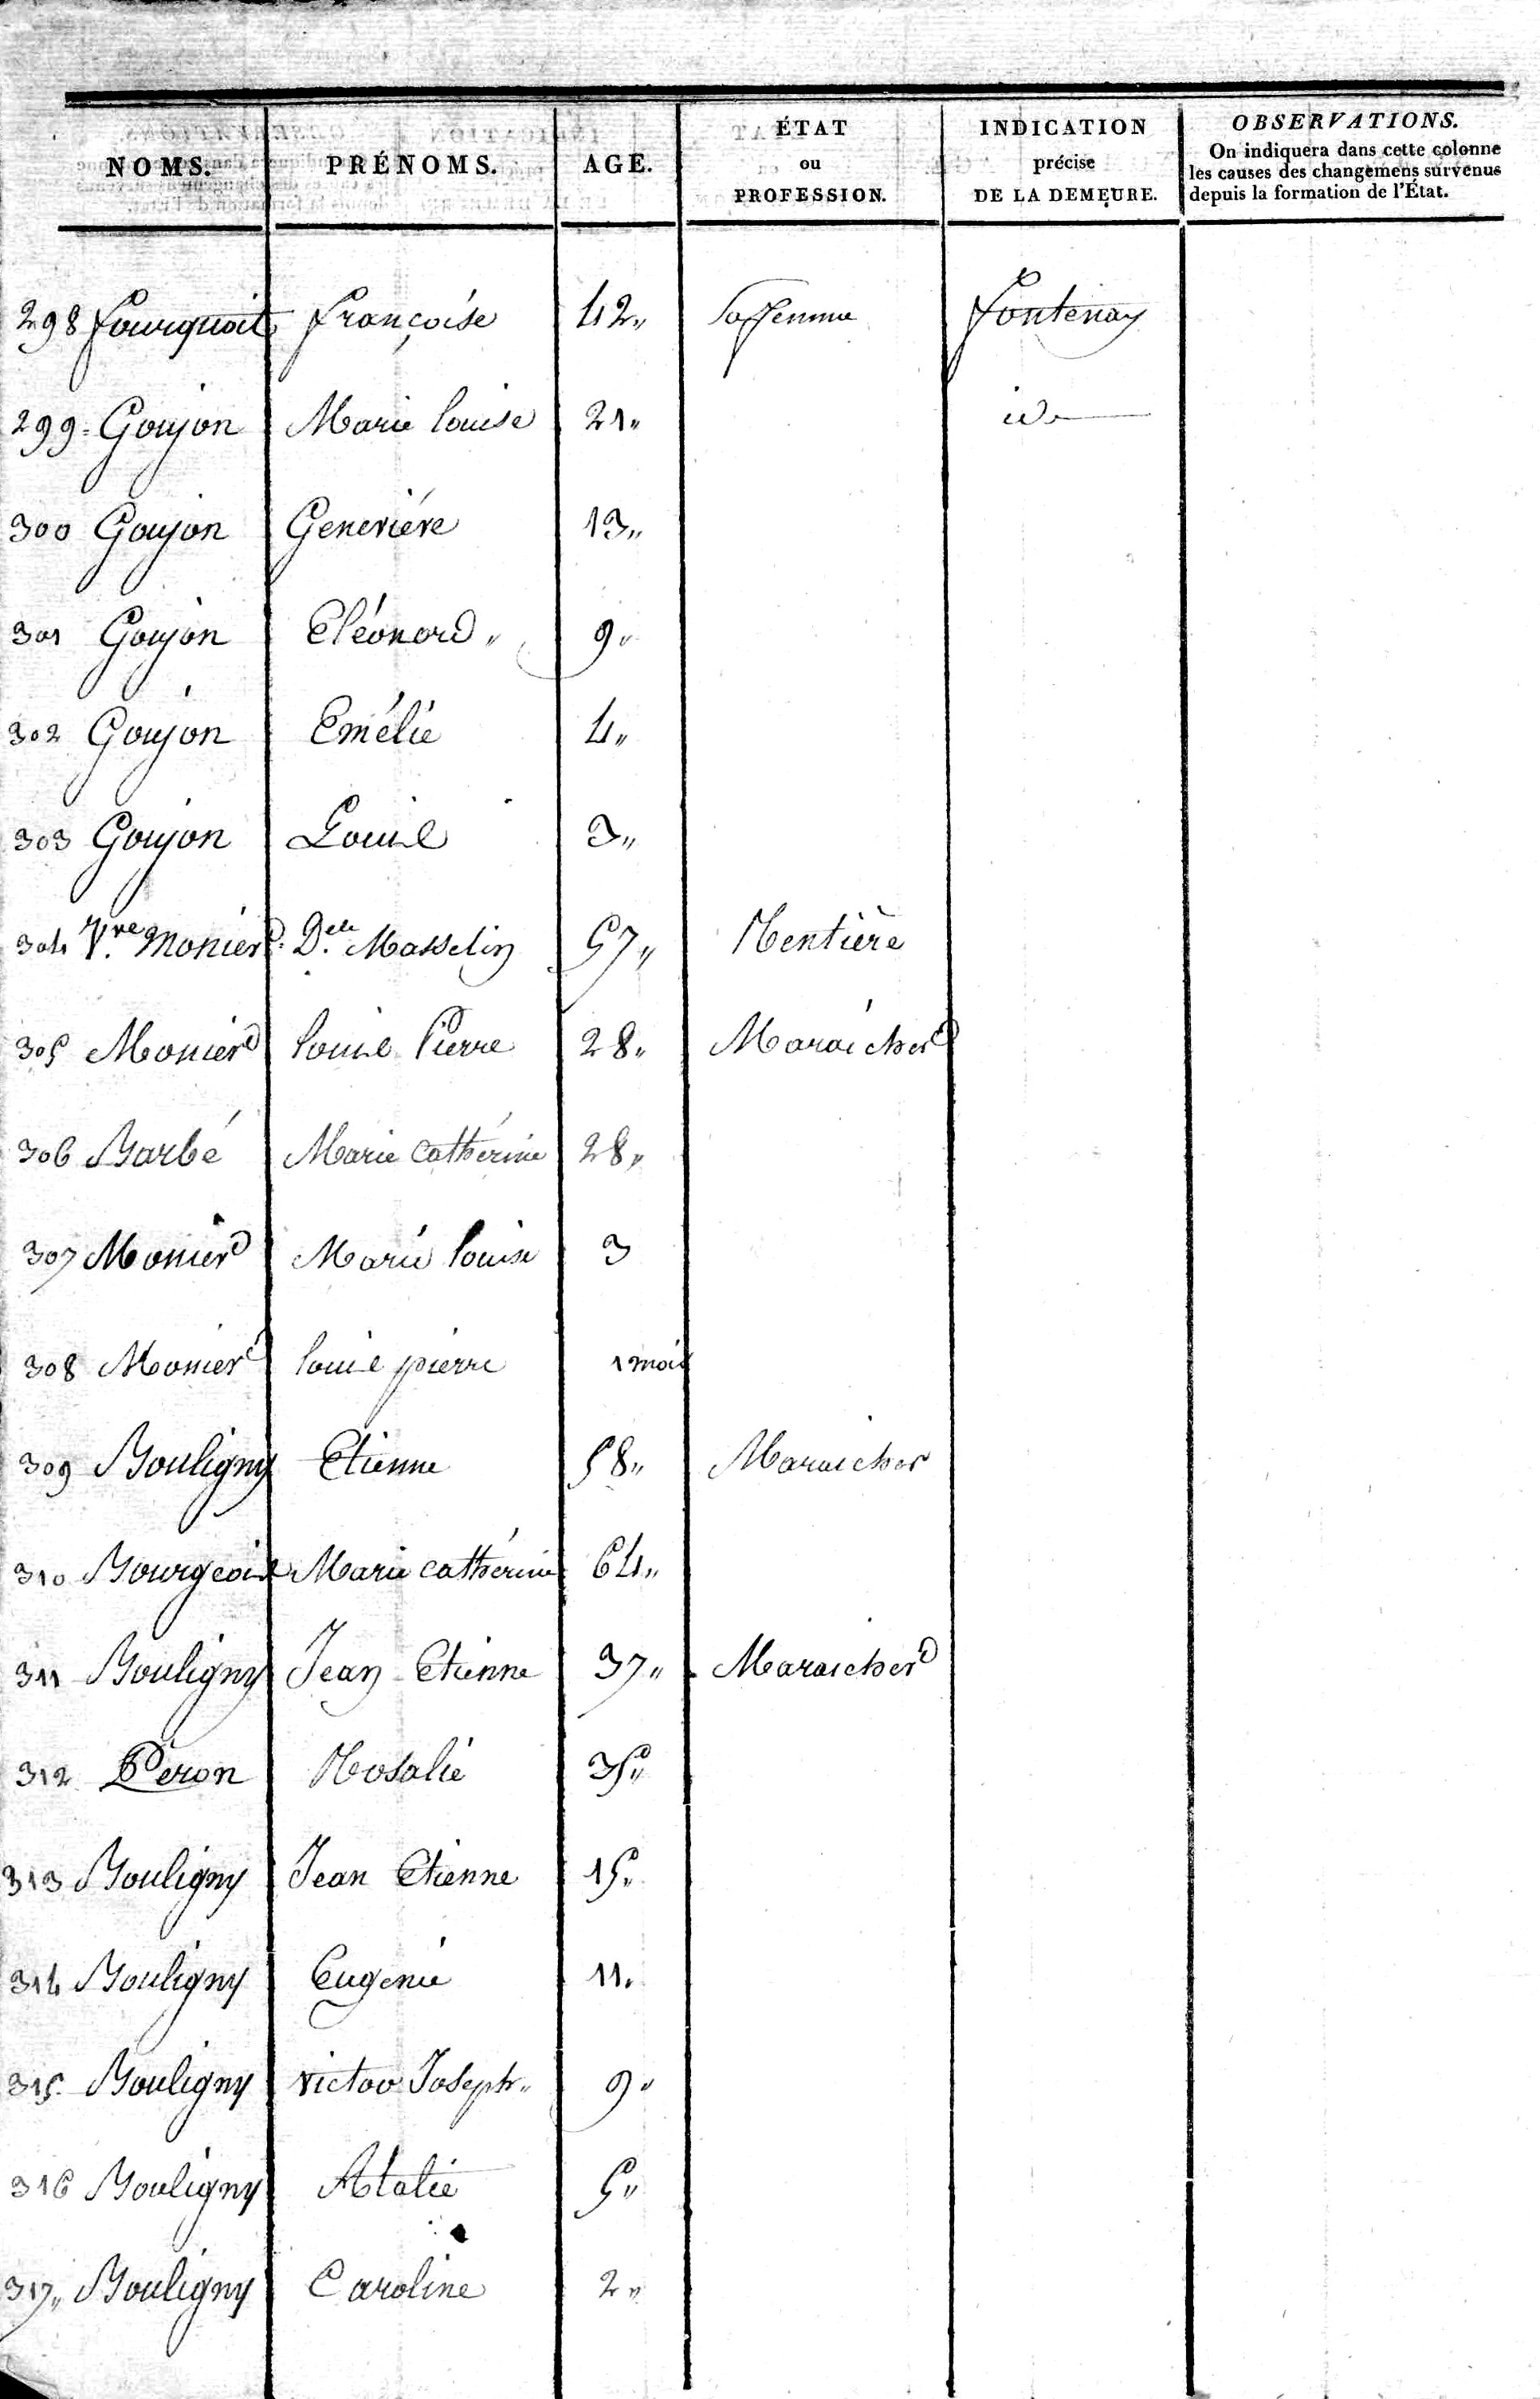 NOMS. PRÉNOMS. AGE. ÉTAT ou PROFESSION. INDICATION précise DE LA DEMEURE. OBSERVATIONS. On indiquera dans cette colonne les causes des changemens survenus depuis la formation de l'État.
298 Fourquoit Françoise 42" Sa femme Fontenay
299 = Goujon Marie Louise 21" id
300 Goujon Geneviéve 13"
301 Goujon Eléonord " 9"
302 Goujon Emélie 4"
303 Goujon Louis 3"
304 Vve Monier D.elle Masselin 57" Rentière
305 Monier Louis Pierre 28" Maraicher
306 Barbé Marie Cathérine 28"
307 Monier Marie Louise 3
308 Monier Louis pierre 1 mois
309 Bouligny Etienne 58" Maraicher
310 Bourgeois Marie Cathérine 64"
311 Bouligny Jean Etienne 37" Maraicher
312 Peron Rosalie 35"
313 Bouligny Jean Etienne 15"
314 Bouligny Eugenie 11"
315 Bouligny victor Joseph " 9"
316 Bouligny Atalie 5"
317" Bouligny Caroline 2"